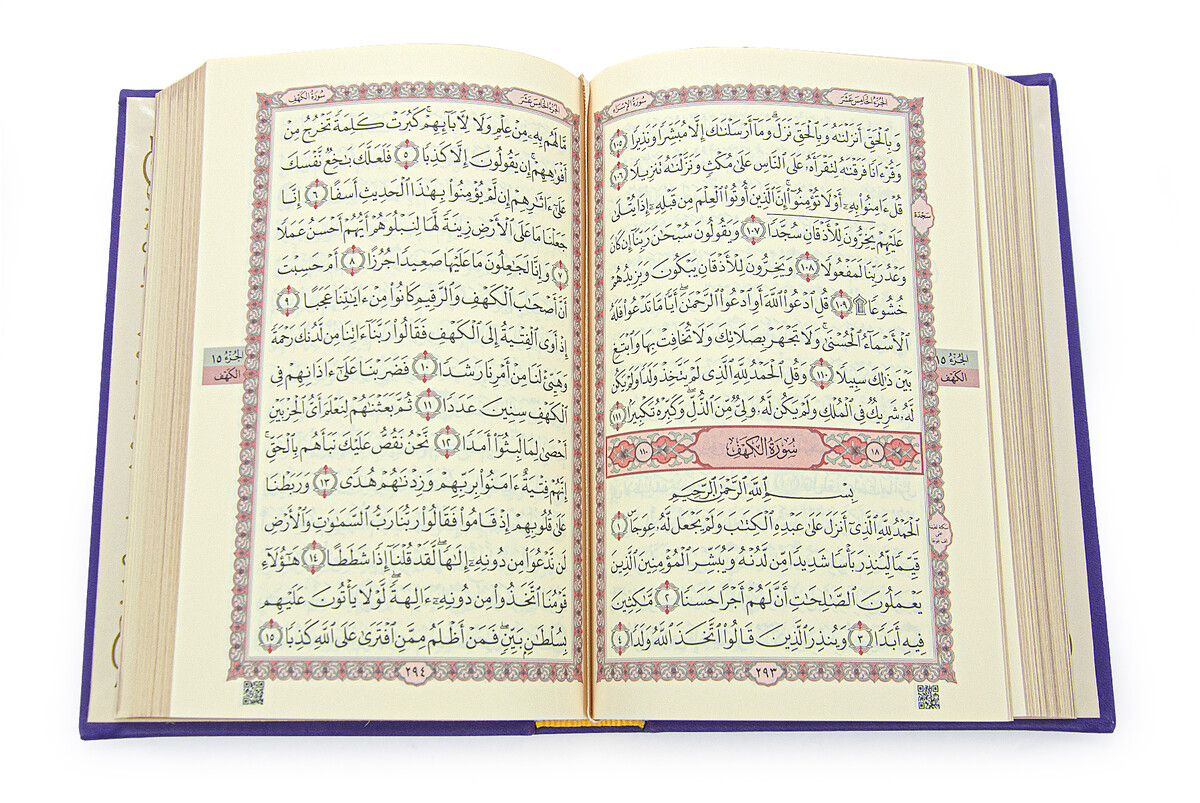 الجزء الخامس عشر
سورة الإسراء
وَبِٱلْحَقِّ أَنزَلْنَٰهُ وَبِٱلْحَقِّ نَزَلَ ۗ وَمَآ أَرْسَلْنَٰكَ إِلَّا مُبَشِّرًا وَنَذِيرًا ١٠٥
وَقُرْءَانًا فَرَقْنَٰهُ لِتَقْرَأَهُۥ عَلَى ٱلنَّاسِ عَلَىٰ مُكْثٍ وَنَزَّلْنَٰهُ تَنزِيلًا ١٠٦
قُلْ ءَامِنُوا۟ بِهِۦٓ أَوْ لَا تُؤْمِنُوٓا۟ ۚ إِنَّ ٱلَّذِينَ أُوتُوا۟ ٱلْعِلْمَ مِن قَبْلِهِۦٓ إِذَا يُتْلَىٰ
عَلَيْهِمْ يَخِرُّونَ لِلْأَذْقَانِ سُجَّدًا ١٠٧ وَيَقُولُونَ سُبْحَٰنَ رَبِّنَآ إِن كَانَ
وَعْدُ رَبِّنَا لَمَفْعُولًا ١٠٨ وَيَخِرُّونَ لِلْأَذْقَانِ يَبْكُونَ وَيَزِيدُهُمْ
خُشُوعًا ۩ ١٠٩ قُلِ ٱدْعُوا۟ ٱللَّهَ أَوِ ٱدْعُوا۟ ٱلرَّحْمَٰنَ ۖ أَيًّا مَّا تَدْعُوا۟ فَلَهُ
ٱلْأَسْمَآءُ ٱلْحُسْنَىٰ ۚ وَلَا تَجْهَرْ بِصَلَاتِكَ وَلَا تُخَافِتْ بِهَا وَٱبْتَغِ
بَيْنَ ذَٰلِكَ سَبِيلًا ١١٠ وَقُلِ ٱلْحَمْدُ لِلَّهِ ٱلَّذِى لَمْ يَتَّخِذْ وَلَدًا وَلَمْ يَكُن
لَّهُۥ شَرِيكٌ فِى ٱلْمُلْكِ وَلَمْ يَكُن لَّهُۥ وَلِىٌّ مِّنَ ٱلذُّلِّ ۖ وَكَبِّرْهُ تَكْبِيرًۢا ١١١
١٨ سُورَةُ الكَهْفِ ١١٠
بِسْمِ ٱللَّهِ ٱلرَّحْمَٰنِ ٱلرَّحِيمِ
ٱلْحَمْدُ لِلَّهِ ٱلَّذِىٓ أَنزَلَ عَلَىٰ عَبْدِهِ ٱلْكِتَٰبَ وَلَمْ يَجْعَل لَّهُۥ عِوَجَا ۜ ١
قَيِّمًا لِّيُنذِرَ بَأْسًا شَدِيدًا مِّن لَّدُنْهُ وَيُبَشِّرَ ٱلْمُؤْمِنِينَ ٱلَّذِينَ
يَعْمَلُونَ ٱلصَّٰلِحَٰتِ أَنَّ لَهُمْ أَجْرًا حَسَنًا ٢ مَّٰكِثِينَ
فِيهِ أَبَدًا ٣ وَيُنذِرَ ٱلَّذِينَ قَالُوا۟ ٱتَّخَذَ ٱللَّهُ وَلَدًا ٤
٢٩٣
سجدة
الجزء ١٥
الكهف
الجزء الخامس عشر
سورة الكهف
مَّا لَهُم بِهِۦ مِنْ عِلْمٍ وَلَا لِـَٔابَآئِهِمْ ۚ كَبُرَتْ كَلِمَةً تَخْرُجُ مِنْ
أَفْوَٰهِهِمْ ۚ إِن يَقُولُونَ إِلَّا كَذِبًا ٥ فَلَعَلَّكَ بَٰخِعٌ نَّفْسَكَ
عَلَىٰٓ ءَاثَٰرِهِمْ إِن لَّمْ يُؤْمِنُوا۟ بِهَٰذَا ٱلْحَدِيثِ أَسَفًا ٦ إِنَّا
جَعَلْنَا مَا عَلَى ٱلْأَرْضِ زِينَةً لَّهَا لِنَبْلُوَهُمْ أَيُّهُمْ أَحْسَنُ عَمَلًا
٧ وَإِنَّا لَجَٰعِلُونَ مَا عَلَيْهَا صَعِيدًا جُرُزًا ٨ أَمْ حَسِبْتَ
أَنَّ أَصْحَٰبَ ٱلْكَهْفِ وَٱلرَّقِيمِ كَانُوا۟ مِنْ ءَايَٰتِنَا عَجَبًا ٩
إِذْ أَوَى ٱلْفِتْيَةُ إِلَى ٱلْكَهْفِ فَقَالُوا۟ رَبَّنَآ ءَاتِنَا مِن لَّدُنكَ رَحْمَةً
وَهَيِّئْ لَنَا مِنْ أَمْرِنَا رَشَدًا ١٠ فَضَرَبْنَا عَلَىٰٓ ءَاذَانِهِمْ فِى
ٱلْكَهْفِ سِنِينَ عَدَدًا ١١ ثُمَّ بَعَثْنَٰهُمْ لِنَعْلَمَ أَىُّ ٱلْحِزْبَيْنِ
أَحْصَىٰ لِمَا لَبِثُوٓا۟ أَمَدًا ١٢ نَّحْنُ نَقُصُّ عَلَيْكَ نَبَأَهُم بِٱلْحَقِّ ۚ
إِنَّهُمْ فِتْيَةٌ ءَامَنُوا۟ بِرَبِّهِمْ وَزِدْنَٰهُمْ هُدًى ١٣ وَرَبَطْنَا
عَلَىٰ قُلُوبِهِمْ إِذْ قَامُوا۟ فَقَالُوا۟ رَبُّنَا رَبُّ ٱلسَّمَٰوَٰتِ وَٱلْأَرْضِ
لَن نَّدْعُوَا۟ مِن دُونِهِۦٓ إِلَٰهًا ۖ لَّقَدْ قُلْنَآ إِذًا شَطَطًا ١٤ هَٰٓؤُلَآءِ
قَوْمُنَا ٱتَّخَذُوا۟ مِن دُونِهِۦٓ ءَالِهَةً ۖ لَّوْلَا يَأْتُونَ عَلَيْهِم
بِسُلْطَٰنٍۭ بَيِّنٍ ۖ فَمَنْ أَظْلَمُ مِمَّنِ ٱفْتَرَىٰ عَلَى ٱللَّهِ كَذِبًا ١٥
٢٩٤
الجزء ١٥
الكهف